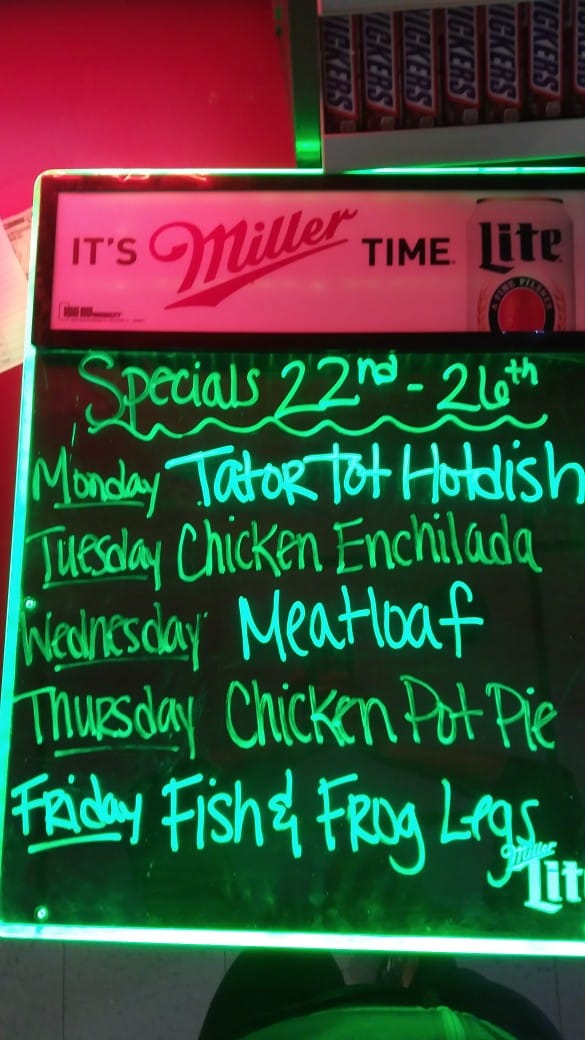 SNICKERS SNICKERS SNICKERS SNICKERS SNICKERS SNICKERS
IT'S Miller TIME. Lite
A FINE PILSNER
Specials 22nd - 26th
Monday Tator Tot Hotdish
Tuesday Chicken Enchilada
Wednesday Meatloaf
Thursday Chicken Pot Pie
Friday Fish & Frog Legs
Miller
Lit